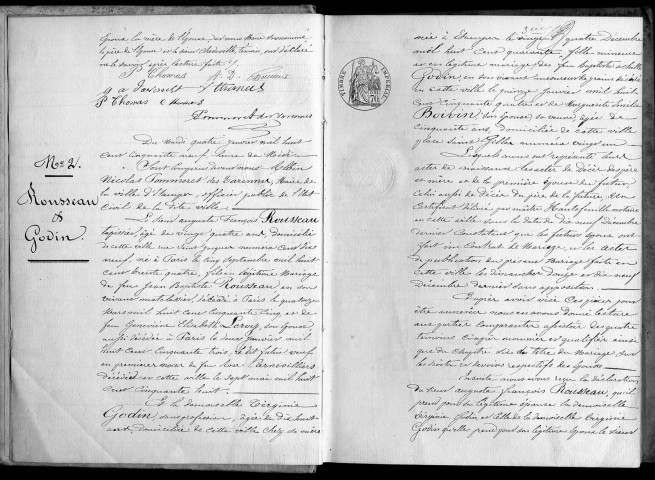 Epoux la mère de l'Epouse, de nous Maire soussigné,
le père de l'Epoux et le sieur témoin, ont déclaré
ne le savoir après lecture faite
P. Thomas
Thomas
P. Thomas
Pommeret des Varennes
Nº 2.
Rousseau
&
Godin.
Du Mardi quatre janvier mil huit
cent cinquante neuf heure de
Sont comparus devant nous
Nicolas Pommeret des Varennes, Maire de
la ville d'Etampes, officier public de l'Etat
Civil de la dite ville.
Le sieur auguste François Rousseau
tapissier, âgé de vingt quatre ans, domicilié
en cette ville rue numéro cent dix
neuf, né à Paris le cinq Septembre mil huit
cent trente quatre, fils en légitime Mariage
de feu Jean Baptiste Rousseau, en son
vivant matelassier, décédé à Paris le quatorze
mil huit cent cinquante cinq, et de
feu Geneviève Elisabeth Leroy, son épouse,
aussi décédée à Paris le deux janvier mil
huit cent cinquante trois, le dit futur veuf
en premières noces de
décédée en cette ville le sept mai mil huit
cent cinquante huit.
Et la demoiselle Virginie
Godin sans profession, âgée de dix huit
ans domiciliée en cette ville chez sa mère
née à Etampes le vingt quatre Décembre
mil huit cent quarante, fille mineure
et en légitime mariage, de feu
Godin, en son vivant mesureur de grains décédé
en cette ville le quinze janvier mil huit
cent cinquante quatre et de Marguerite
Boivin, son Epouse, sa veuve, âgée de
cinquante ans, domiciliée en cette ville
place Saint Gilles numéro vingt un.
Lesquels nous ont représenté leurs
actes de naissance, les actes de décès des père
et mère et de la première épouse du futur,
celui aussi de décès du père de la future, un
certificat délivré par maître Hautefeuille notaire
en cette ville sous la date du dix neuf décembre
dernier constatant que les futurs époux ont
fait un Contrat de Mariage, et les actes
de publication du présent Mariage faite en
cette ville les dimanches douze et dix neuf
décembre dernier sans opposition.
Après avoir visé ces pièces pour
être annexées nous en avons donné lecture
aux parties comparantes assistées des quatre
témoins ci après nommés et qualifiés ainsi
que du chapitre six du titre du Mariage sur
les droits et devoirs respectifs des Epoux.
Ensuite nous avons reçu la déclaration
du sieur auguste François Rousseau, qu'il
prend pour sa légitime épouse la demoiselle
Virginie Godin, et celle de la demoiselle Virginie
Godin qu'elle prend pour son légitime époux le sieur
TIMBRE IMPÉRIAL